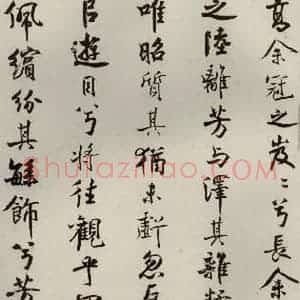 高余冠之岌〻兮長余
之陸離芳与澤其雜糅
唯昭質其猶未虧忽反
目遊目兮將往觀乎四
佩繽紛其繇飾兮芳
Shufaziliao.com